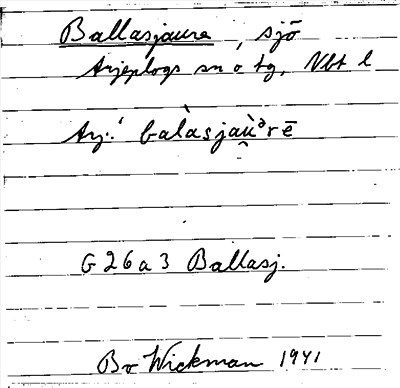 Ballasjaure, sjö
Arjeplogs sn o tg, Vbt l
Arj.: balàsjaù̯ᵊrē
G 26 a 3 Ballasj.
Bo Wickman 1941